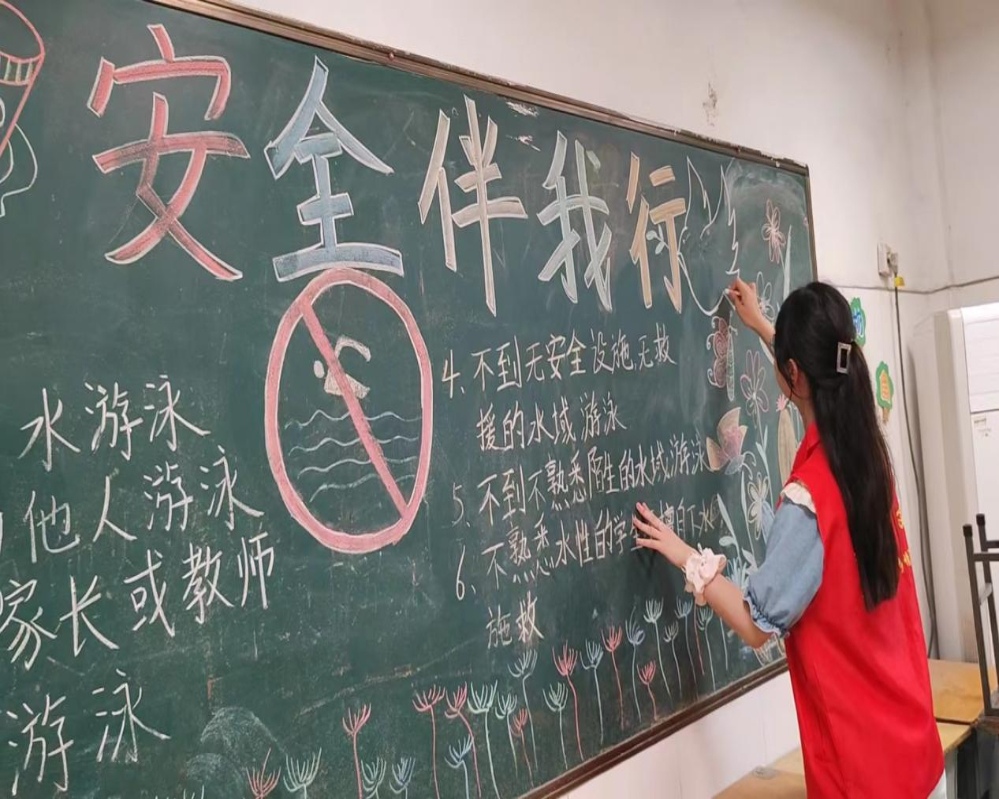 安全伴我行
水游泳
他人游泳
家长或教师
游泳
4、不到无安全设施、无救
援的水域游泳
5、不到不熟悉陌生的水域游泳
6、不熟悉水性的学生 自下水
施救